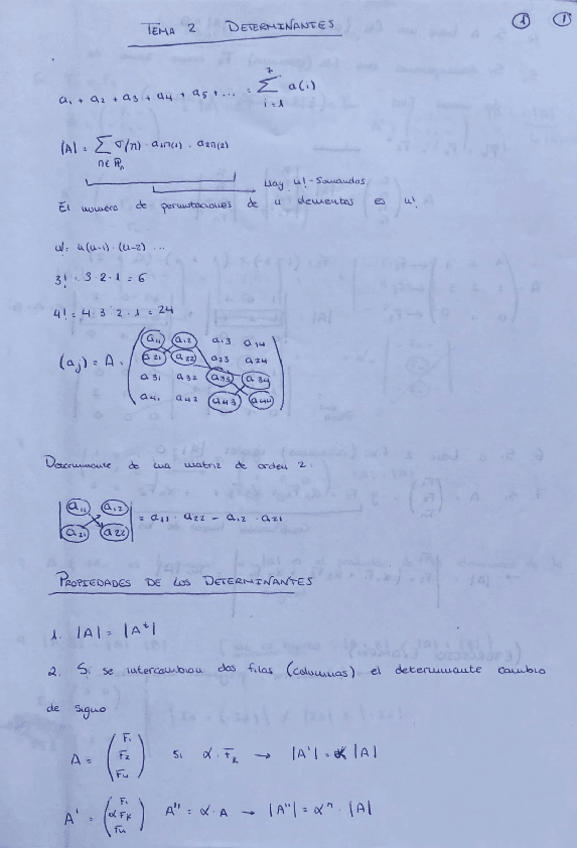 TEMA 2 DETERMINANTES
1 1
a₁ + a₂ + a₃ + a₄ + a₅ + ... = Σ_{i=1}^{7} a(i)
|A| = Σ_{π∈ℙₙ} σ(π) · a₁π(1) · a₂π(2)
Hay n! - Sumandos
El numero de permutaciones de n elementos es n!
n! = n(n-1) · (n-2) ...
3! = 3 · 2 · 1 = 6
4! = 4 · 3 · 2 · 1 = 24
a₁₁ a₁₂ a₁₃ a₁₄
(aⱼ) = A = a₂₁ a₂₂ a₂₃ a₂₄
a₃₁ a₃₂ a₃₃ a₃₄
a₄₁ a₄₂ a₄₃ a₄₄
Determinante de una matriz de orden 2:
a₁₁ a₁₂
= a₁₁ · a₂₂ - a₁₂ · a₂₁
a₂₁ a₂₂
PROPIEDADES DE LOS DETERMINANTES
1. |A| = |Aᵗ|
2. Si se intercambian dos filas (columnas) el determinante cambia
de signo
F₁
A = F₂ Si α · Fₖ → |A'| = α |A|
Fₙ
F₁
A' = α Fₖ A'' = α · A → |A''| = αⁿ · |A|
Fₙ